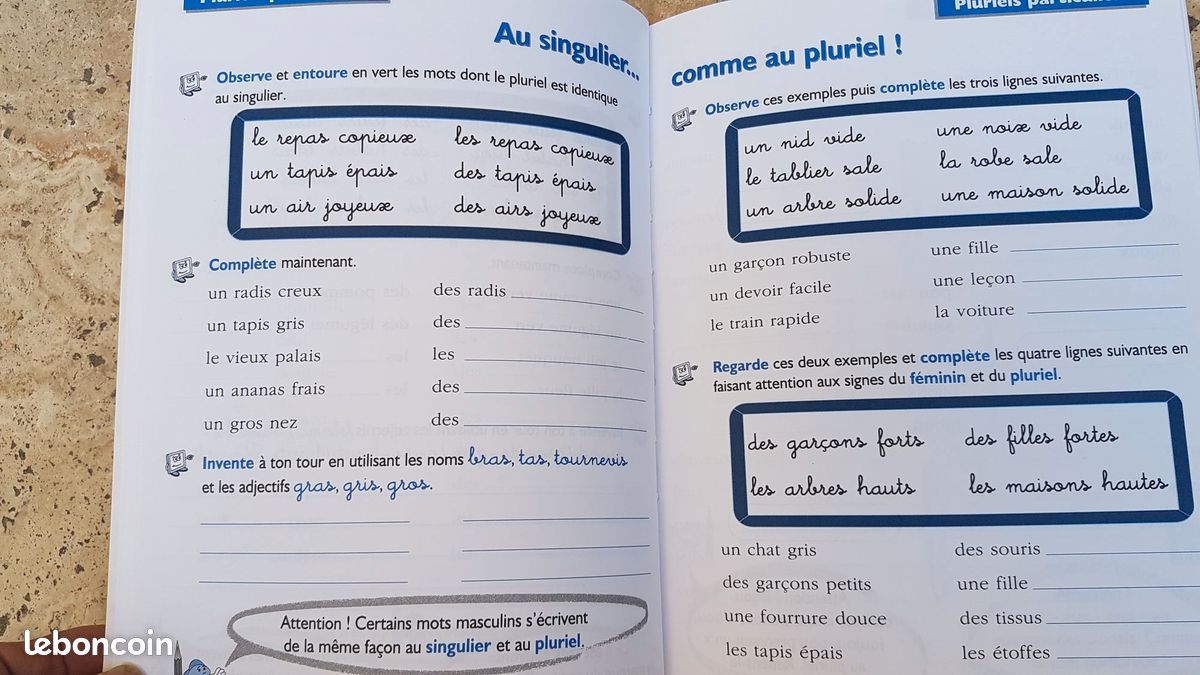 Au singulier...
Observe et entoure en vert les mots dont le pluriel est identique
au singulier.
le repas copieux les repas copieux
un tapis épais des tapis épais
un air joyeux des airs joyeux
Complète maintenant.
un radis creux des radis
un tapis gris des
le vieux palais les
un ananas frais des
un gros nez des
Invente à ton tour en utilisant les noms bras, tas, tournevis
et les adjectifs gras, gris, gros.
Attention ! Certains mots masculins s'écrivent
de la même façon au singulier et au pluriel.
leboncoin
Pluriels
comme au pluriel !
Observe ces exemples puis complète les trois lignes suivantes.
un nid vide une noix vide
le tablier sale la robe sale
un arbre solide une maison solide
un garçon robuste une fille
un devoir facile une leçon
le train rapide la voiture
Regarde ces deux exemples et complète les quatre lignes suivantes en
faisant attention aux signes du féminin et du pluriel.
des garçons forts des filles fortes
les arbres hauts les maisons hautes
un chat gris des souris
des garçons petits une fille
une fourrure douce des tissus
les tapis épais les étoffes